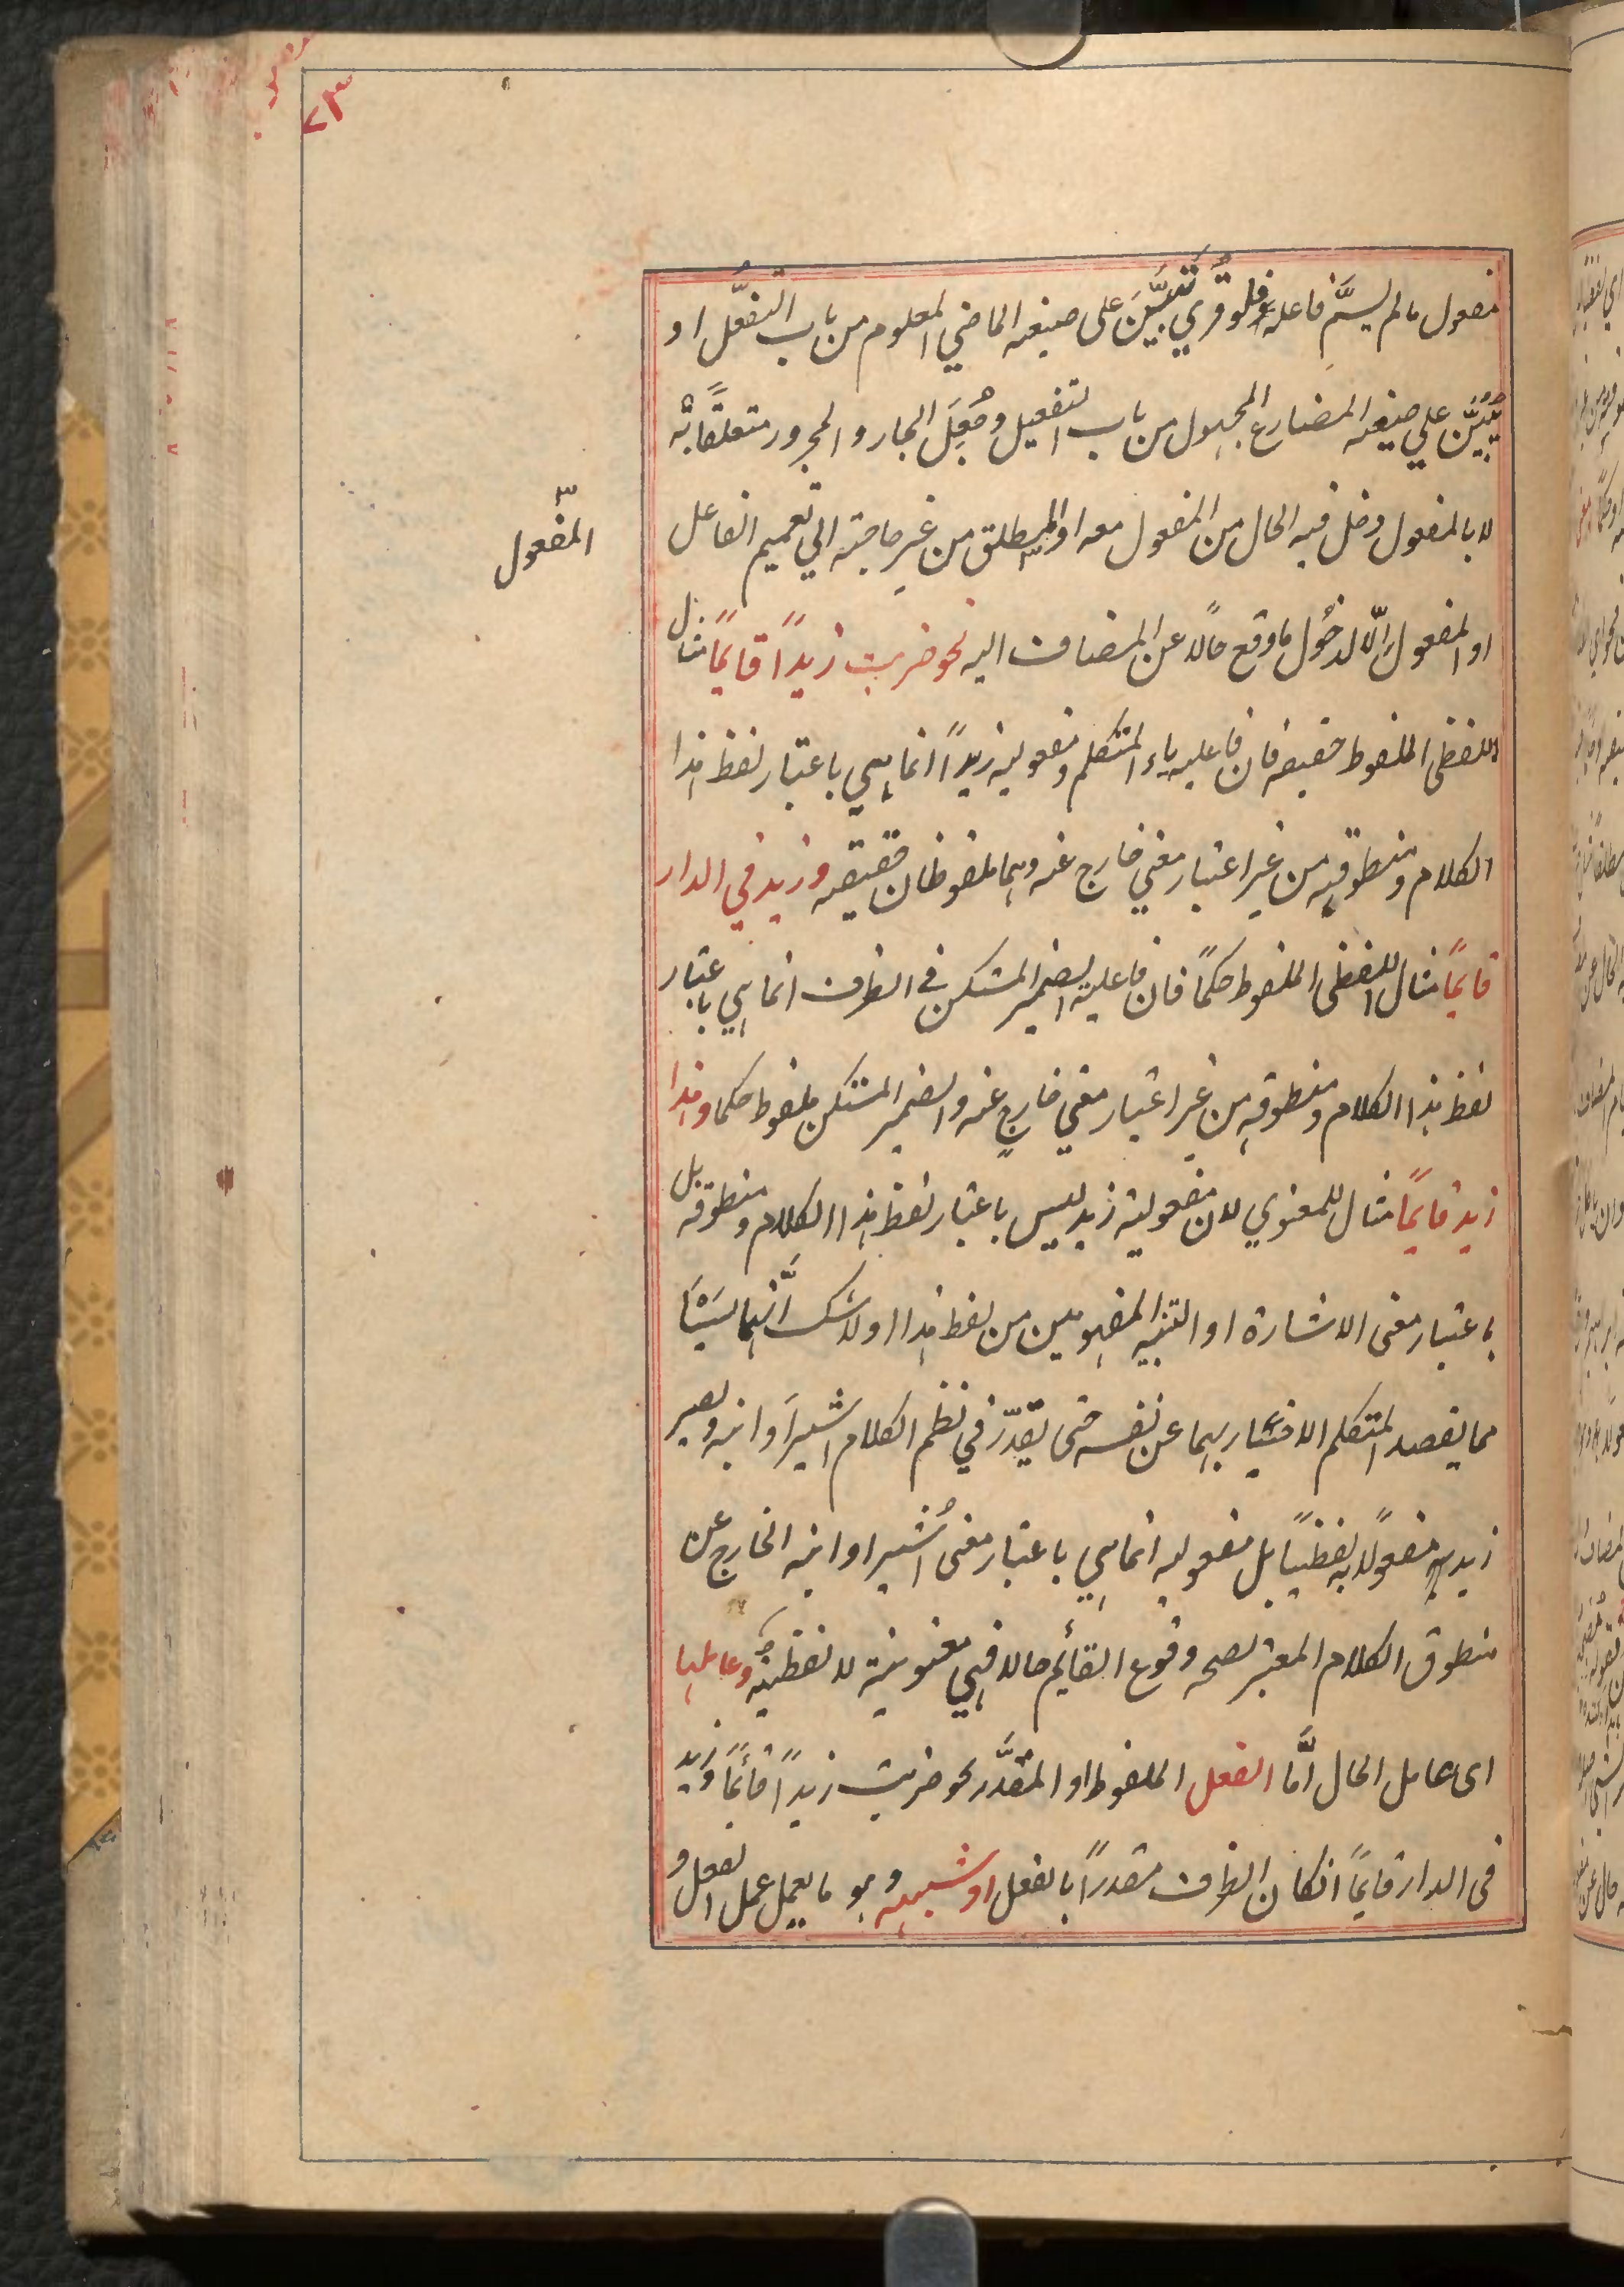 ٧٣
مفعول مالم يسمَّ فاعله فلو قُرِي تَبَيَّنَ على صيغه الماضي المعلوم من باب التفعُّل او
يُبَيَّن على صيغه المضارع المجهول من باب التفعيل وجُعِلَ الجار والمجرور متعلقًا به
لا بالمفعول دخل فيه الحال من المفعول معه او المطلق من غير حاجته الي تعميم الفاعل
المفعول
او المفعول الّا لدخُول ما وقع حالا عن المضاف اليه نحو ضربت زيدًا قايمًا مثال
اللفظى الملفوظ حقيقه فان فاعليه ياء المتكلم ومفعوليه زيدًا انما هي باعتبار لفظ هذا
الكلام ومنطوقه من غير اعتبار معني خارج عنه وهما ملفوظان حقيقه وزيد في الدار
قايمًا مثال اللفظى الملفوظ حكمًا فان فاعليه الضمير المستكن في الظرف انما هي باعتبار
لفظ هذا الكلام ومنطوقه من غير اعتبار معني خارجٍ عنه والضمير المستكن ملفوظ حكما وهذا
زيد قايمًا مثال للمعنوي لان مفعولية زيد ليس باعتبار لفظ هذا الكلام ومنطوقه بل
باعتبار معنى الاشارة او التنبيه المفهومين من لفظ هذا ولا شك انّهما ليسَا
مما يقصد المتكلم الاخبار بهما عن نفسه حتى يقدّر في نظم الكلام اشيرَ او انبه ويصير
زيد به مفعولًا به لفظيًا بل مفعوليه انما هي باعتبار معنى اُشير او انبه الخارج عن
منطوق الكلام المعتبر لصحه وقوع القائم حالا فهي معنوية لا لفظيةٌ وعاملها
اى عامل الحال امَّا الفعل الملفوظ او المقدَّر نحو ضربت زيدًا قائمًا وزيد
فى الدار قايمًا انكان الظرف مقدرًا بالفعل او شبهه وهو ما يعمل عمل الفعل و